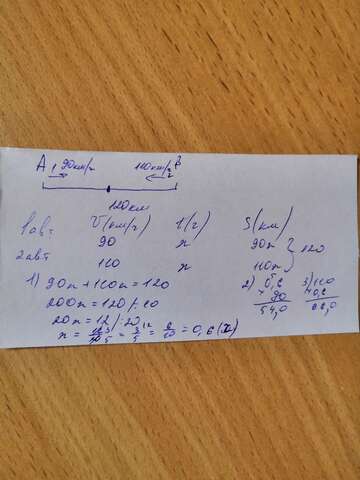 A 90км/г 110км/г B
120км
V(км/г) t(г) S(км)
1авт 90 x 90x
2авт 110 x 110x } 120
1) 90x + 110x = 120
200x = 120 / :10
20x = 12 / :20
x = 12/20 = 3/5 = 6/10 = 0,6 (г)
2) 0,6
× 90
54,0
3) 110
× 0,6
66,0